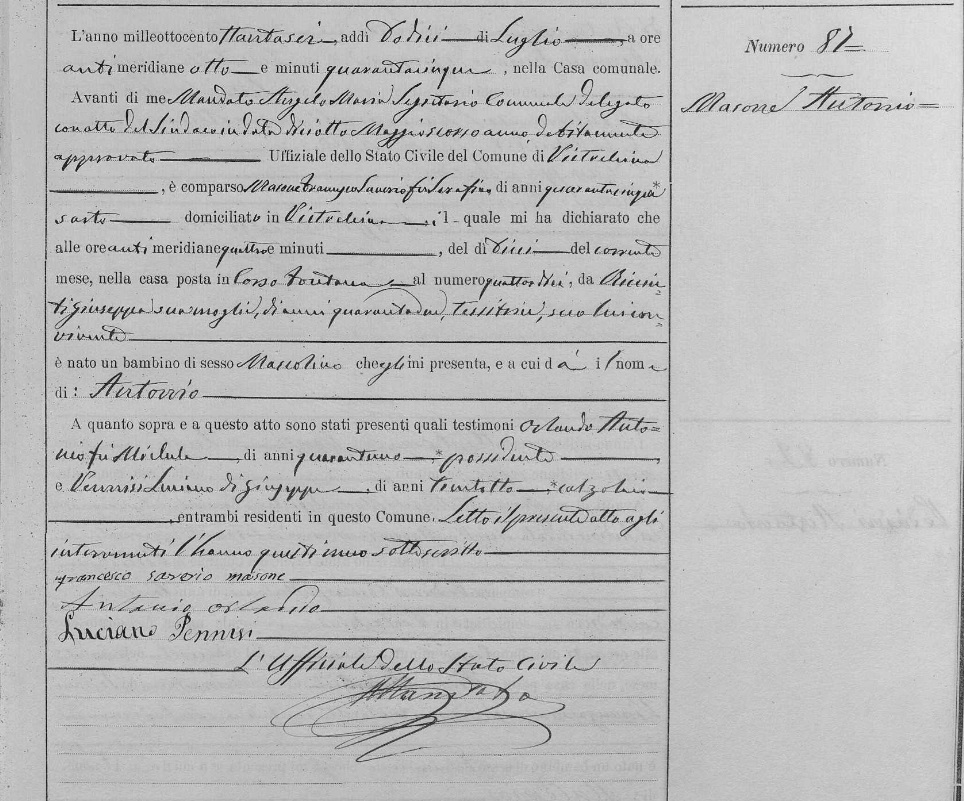 L'anno milleottocento ttantasei, addì Dodici di Luglio, a ore
antimeridiane otto e minuti quarantacinque, nella Casa comunale.
Avanti di me Mandato Angelo Maria Segretario Comunale delegato
con atto del Sindaco in data diciotto Maggio scorso anno debitamente
approvato Uffiziale dello Stato Civile del Comune di Pietrelcina
, è comparso Masone Francesco Saverio fu Serafino, di anni quarantacinque*
sarto domiciliato in Pietrelcina, il quale mi ha dichiarato che
alle ore antimeridiane quattro e minuti, del dì dieci del corrente
mese, nella casa posta in Corso Fontana al numero quattordici, da
Giuseppa sua moglie, di anni quarantadue, tessitrice, seco lui con=
vivente
è nato un bambino di sesso Mascolino che egli mi presenta, e a cui dà il nome
di: Antonio
A quanto sopra e a questo atto sono stati presenti quali testimoni Orlando Anto=
nio fu Michele, di anni quarantuno,* possidente,
e Pennisi Luciano di Giuseppe, di anni trentotto,* calzolaio
, entrambi residenti in questo Comune. Letto il presente atto agli
intervenuti l'hanno questi meco sottoscritto
francesco saverio masone
Antonio orlando
Luciano Pennisi
L'Uffiziale dello Stato Civile
AMandato
Numero 87=
Masone Antonio=